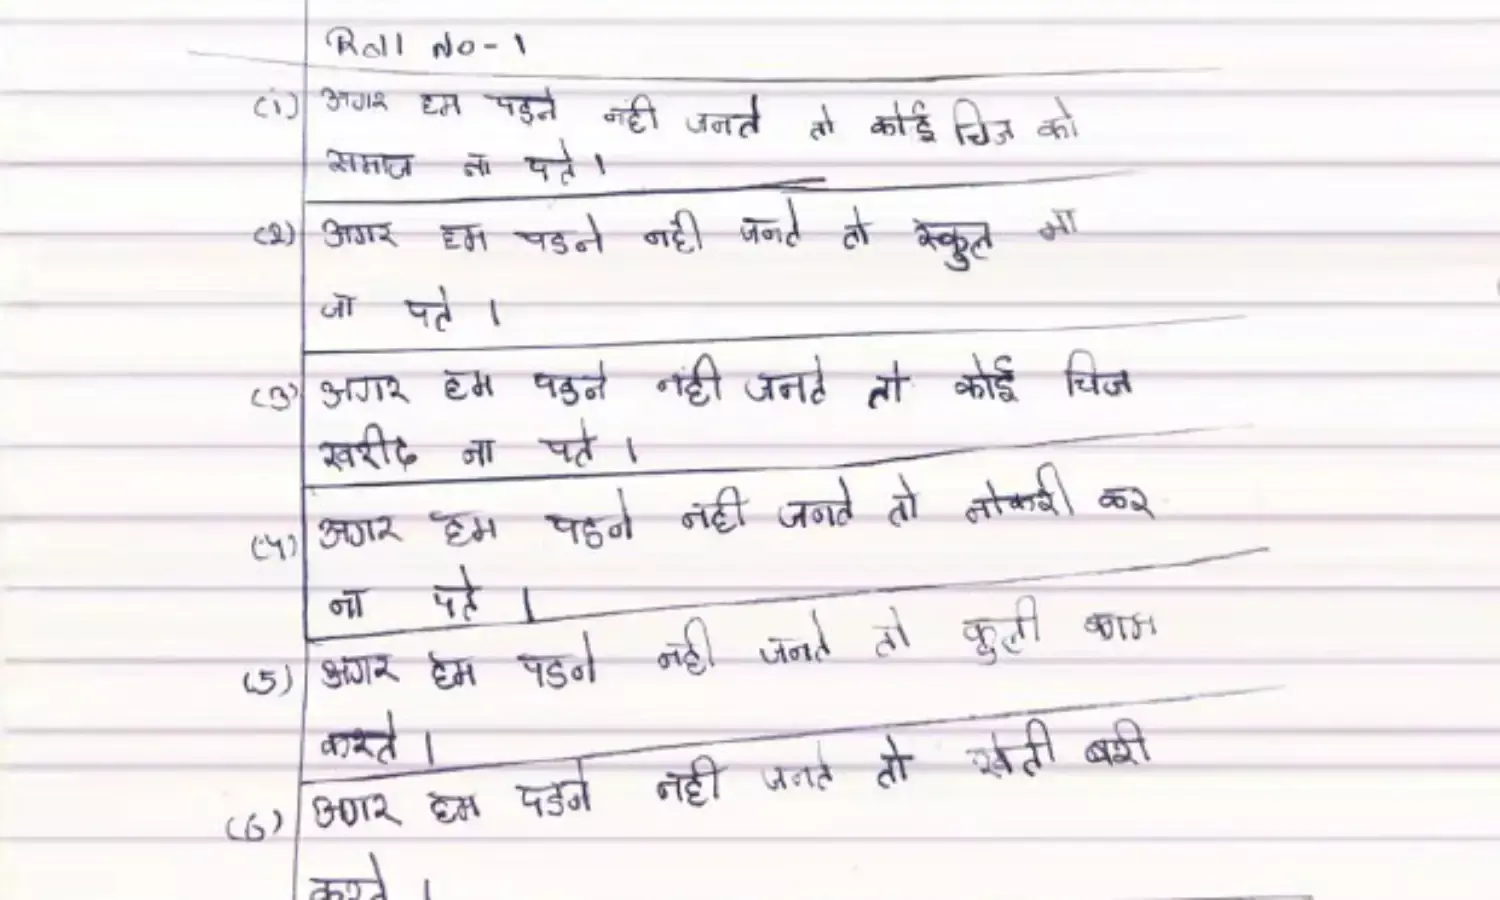 Roll No-1
(1) अगर हम पड़ने नही जनते तो कोई चिज को
समाज ना पते।
(2) अगर हम पडने नही जनते तो स्कुल ना
जा पते।
(3) अगर हम पडने नही जनते तो कोई चिज
खरीद ना पते।
(4) अगर हम पडने नही जनते तो नोकरी कर
ना पते।
(5) अगर हम पडने नही जनते तो कुली काम
करते।
(6) अगर हम पडने नही जनते तो खेती बरी
करते।